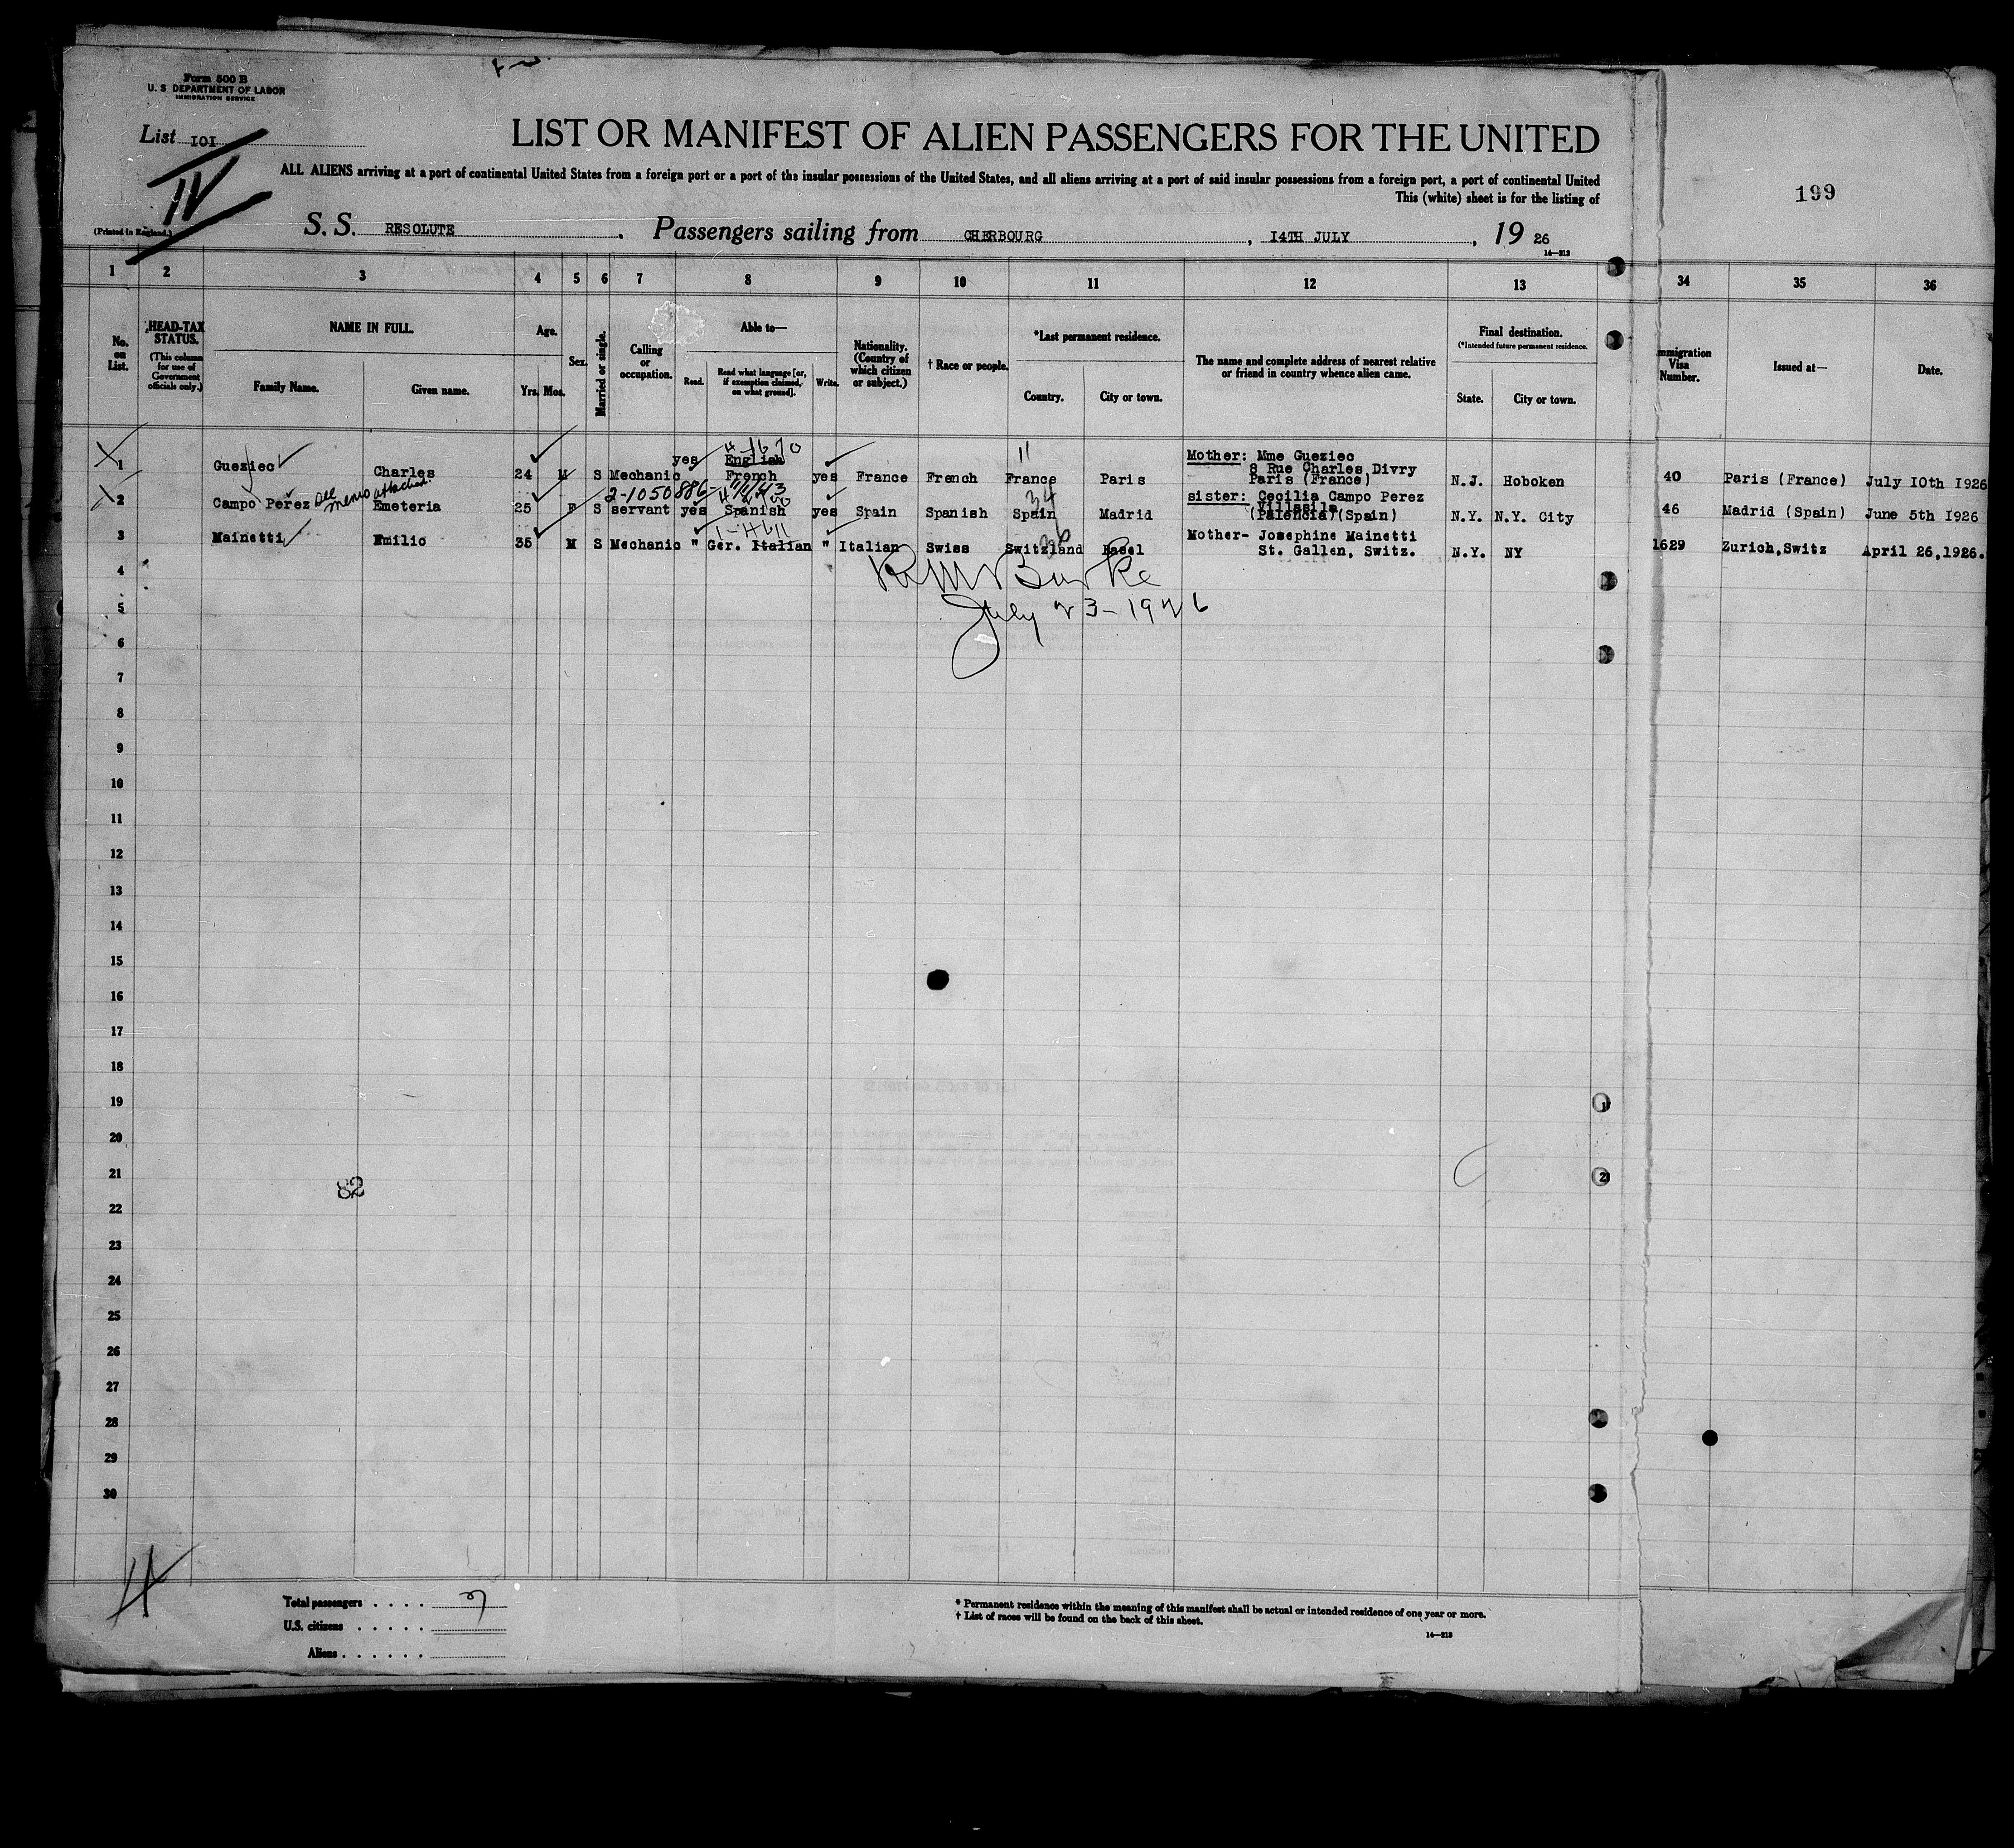 Form 500 B
U. S DEPARTMENT OF LABOR
IMMIGRATION SERVICE
List IOI
IV
(Printed in England.)
LIST OR MANIFEST OF ALIEN PASSENGERS FOR THE UNITED
ALL ALIENS arriving at a port of continental United States from a foreign port or a port of the insular possessions of the United States, and all aliens arriving at a port of said insular possessions from a foreign port, a port of continental United
This (white) sheet is for the listing of
199
S. S. RESOLUTE. Passengers sailing from CHERBOURG, I4TH JULY, 19 26
14—213
1 2 3 4 5 6 7 8 9 10 11 12 13 34 35 36
No. on List.
HEAD-TAX STATUS.
(This column for use of Government officials only.)
NAME IN FULL.
Family Name. Given name.
Age.
Yrs. Mos.
Sex.
Married or single.
Calling or occupation.
Able to—
Read. Read what language [or, if exemption claimed, on what ground]. Write.
Nationality. (Country of which citizen or subject.)
† Race or people.
*Last permanent residence.
Country. City or town.
The name and complete address of nearest relative or friend in country whence alien came.
Final destination.
(*Intended future permanent residence.
State. City or town.
mmigration Visa Number.
Issued at—
Date.
1 Gueziec Charles 24 M S Mechanic yes English French yes France French France Paris Mother: Mme Gueziec 8 Rue Charles Divry Paris (France) N.J. Hoboken 40 Paris (France) July IOth I926
11
2-1050886-
2 Campo Perez memo attached. Emeteria 25 F S servant yes Spanish yes Spain Spanish Spain Madrid sister: Cecilia Campo Perez Villasila (Palencia)(Spain) N.Y. N.Y. City 46 Madrid (Spain) June 5th I926
34
3 Mainetti Emilio 35 M S Mechanic " Ger. Italian " Italian Swiss Switzland Basel Mother- Josephine Mainetti St. Gallen, Switz. N.Y. NY 1629 Zurich,Switz April 26,1926.
Burke
July 23-1926
4
5
6
7
8
9
10
11
12
13
14
15
16
17
18
19
20
21
82
22
23
24
25
26
27
28
29
30
1
2
Total passengers . . . .
U.S. citizens . . . . .
Aliens . . . . . .
* Permanent residence within the meaning of this manifest shall be actual or intended residence of one year or more.
† List of races will be found on the back of this sheet.
14—213